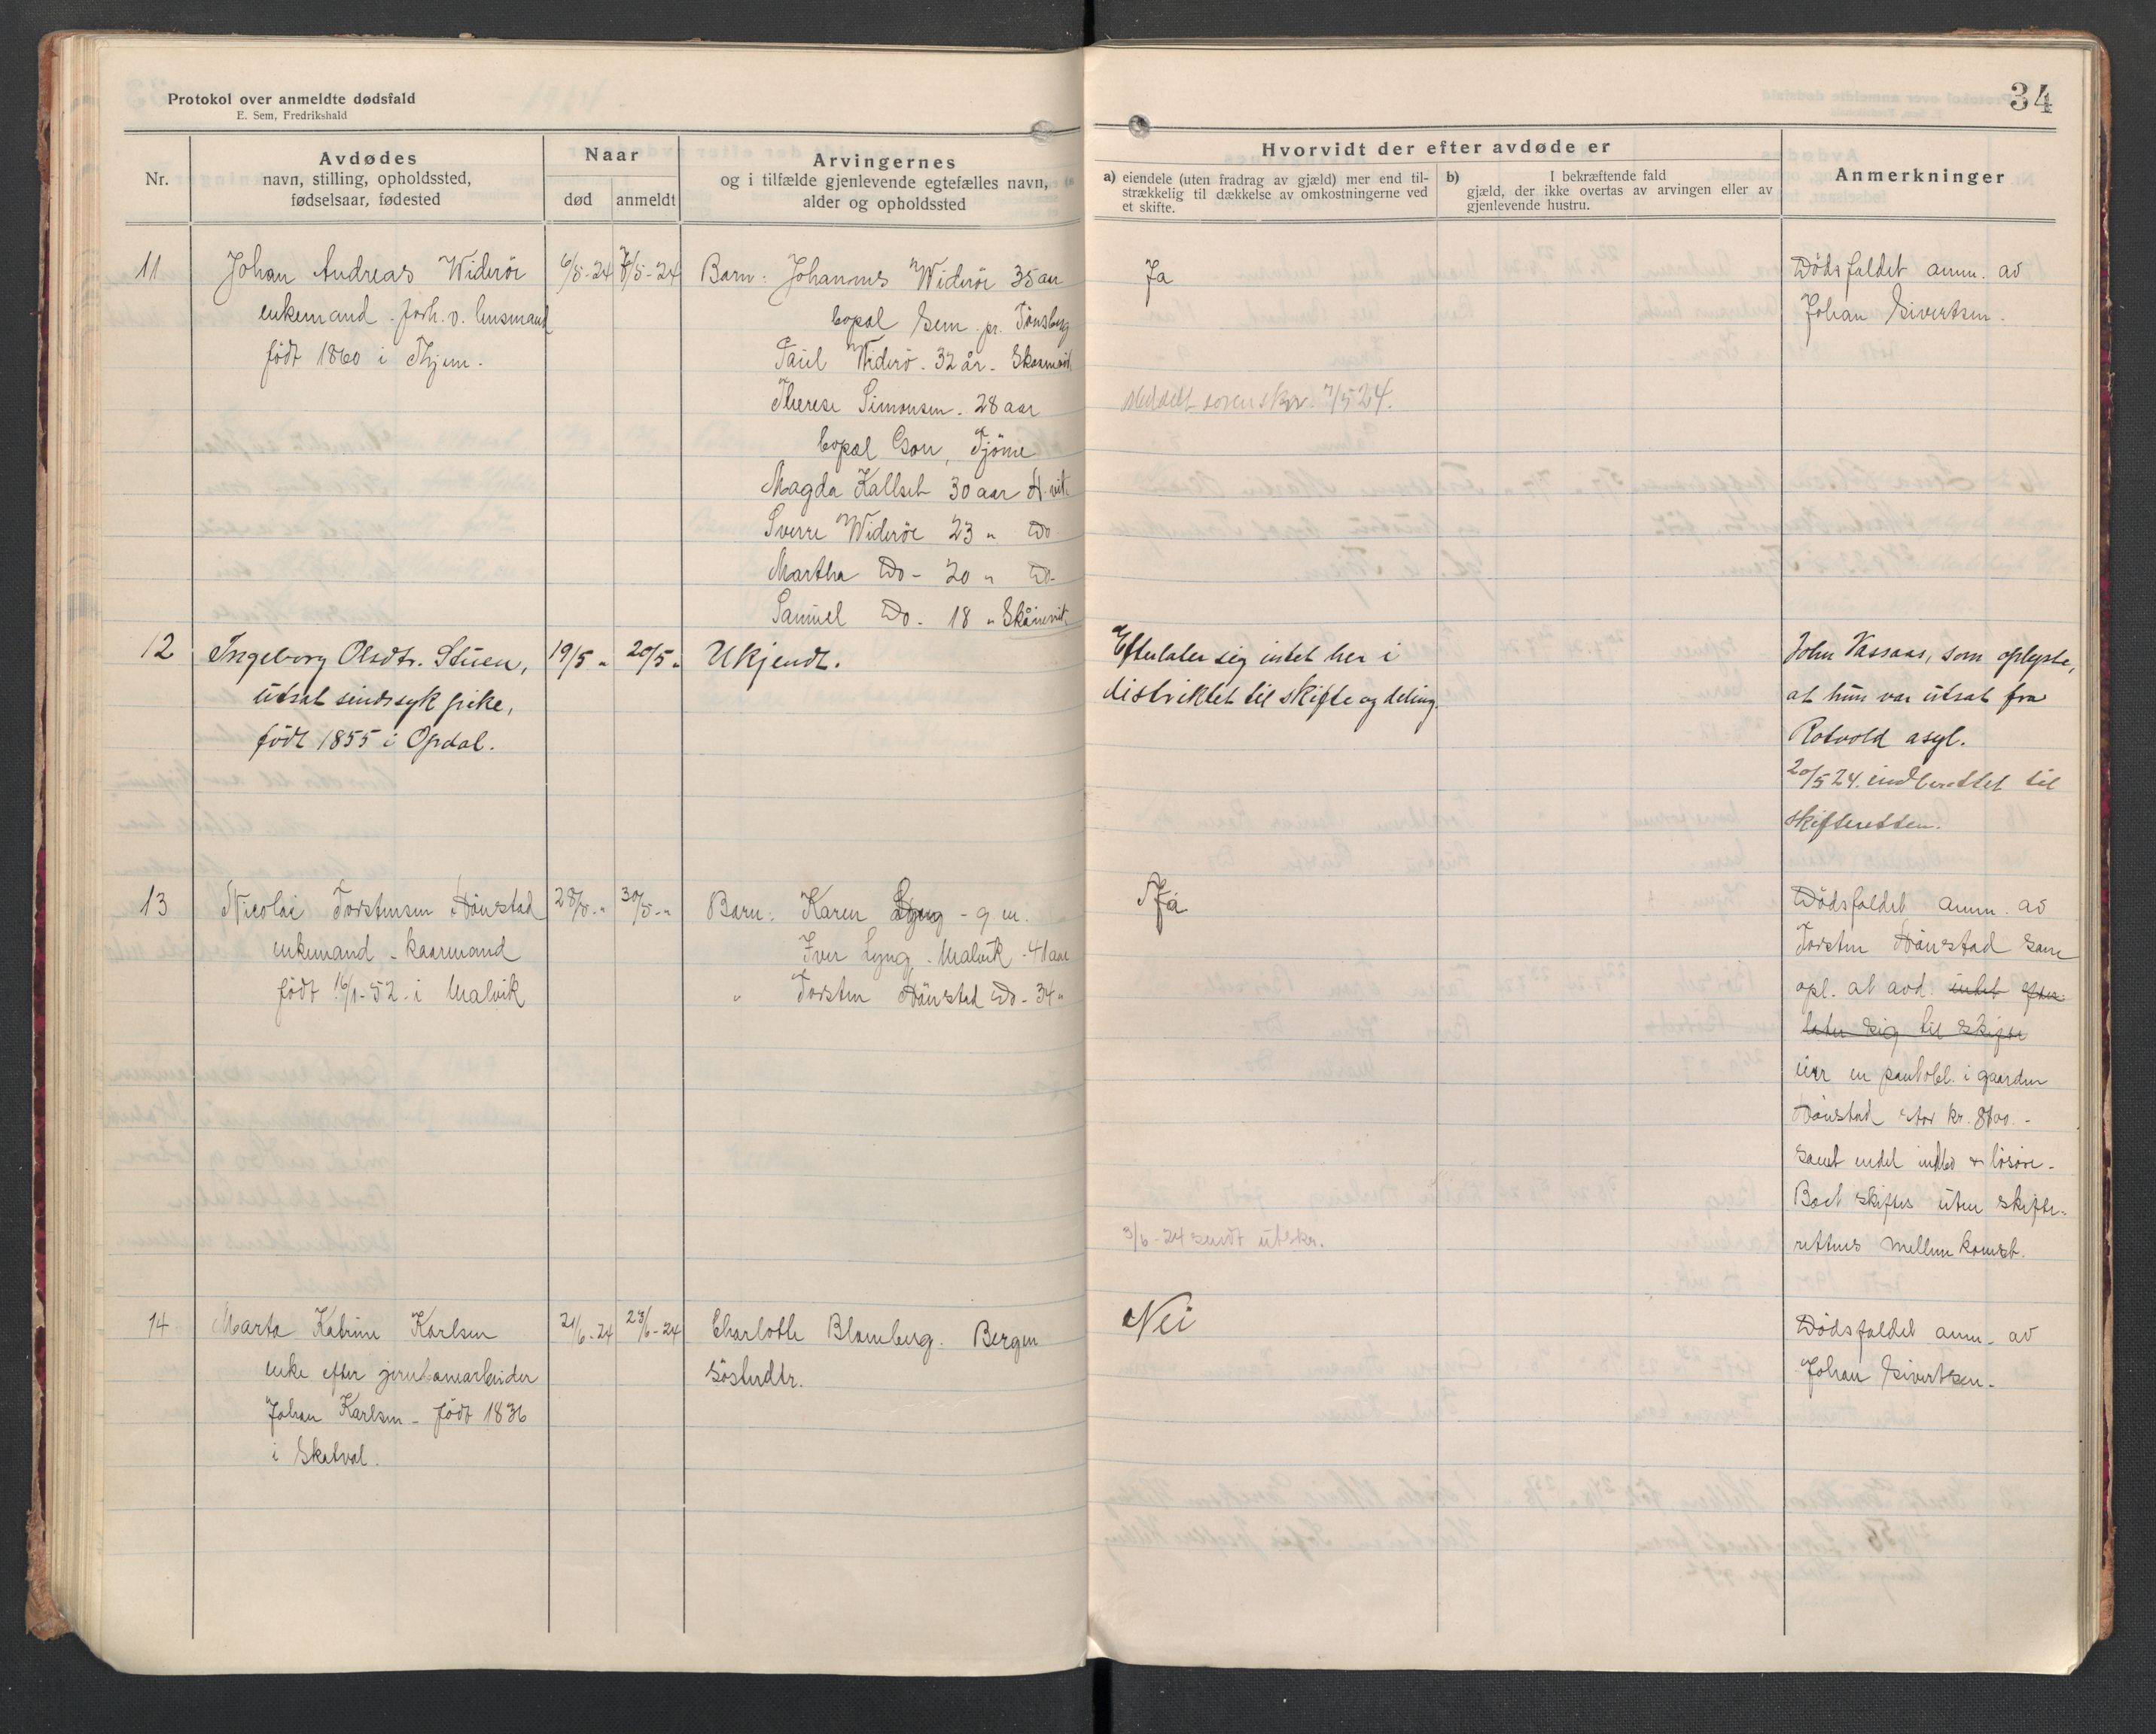 Protokol over anmeldte dødsfald
E. Sem, Fredrikshald
34
Nr.
Avdødes
navn, stilling, opholdssted,
fødselsaar, fødested
Naar
død
anmeldt
Arvingernes
og i tilfælde gjenlevende egtefælles navn,
alder og opholdssted
Hvorvidt der efter avdøde er
a) eiendele (uten fradrag av gjæld) mer end til-
strækkelig til dækkelse av omkostningerne ved
et skifte.
b) I bekræftende fald
gjæld, der ikke overtas av arvingen eller av
gjenlevende hustru.
Anmerkninger
11
Johan Andreas Widerøe
enkemand. forh. v. husmand
født 1860 i Hjem.
6/5-24
7/5-24
Barn: Johannes Widerøe 35 aar
bopæl Sem pr. Tönsberg
Paul Widerö. 32 år.
Therese Simonsen. 28 aar
bopæl Tjöme
Magda Kallset 30 aar H.vik.
Sverre Widerøe 23 " Do
Martha Do - 20 " Do-
Samuel Do. 18 "
Ja
Meddelt sorenskr. 7/5 24.
Dødsfaldet anm. av
Johan Sivertsen.
12
Ingeborg Olsdtr. Stuen,
utsat sindssyk pike,
født 1855 i Opdal.
19/5 "
20/5 "
Ukjendt.
Efterlater sig intet her i
distriktet til skifte og deling.
John Vassaas, som oplyste,
at hun var utsat fra
Rotvold asyl.
20/5 24. indberettet til
skifteretten.
13
Nicolai Torstensen Hønstad
enkemand - kaarmand
født 16/1-52 - i Malvik
28/5 - "
30/5 - "
Barn: Karen Lyng - g. m.
Iver Lyng - Malvik - 41 aar
" Torsten Hönstad Do - 34 "
Ja
3/6-24 sendt utskr.
Dødsfaldet anm. av
Torsten Hönstad som
opl. at avd. intet efter-
later sig til skifte
eier en pantobl. i gaarden
Hönstad stor kr. 8600.-
samt endel indbo & løsøre -
Boet skiftes uten skifte-
rettens mellemkomst.
14
Marta Katrine Karlsen
enke efter jernbanearbeider
Johan Karlsen - født 1836
i Skatval.
21/6-24
23/6-24
Charlotte Blomberg. Bergen
søsterdtr.
Nei
Dødsfaldet anm. av
Johan Sivertsen -